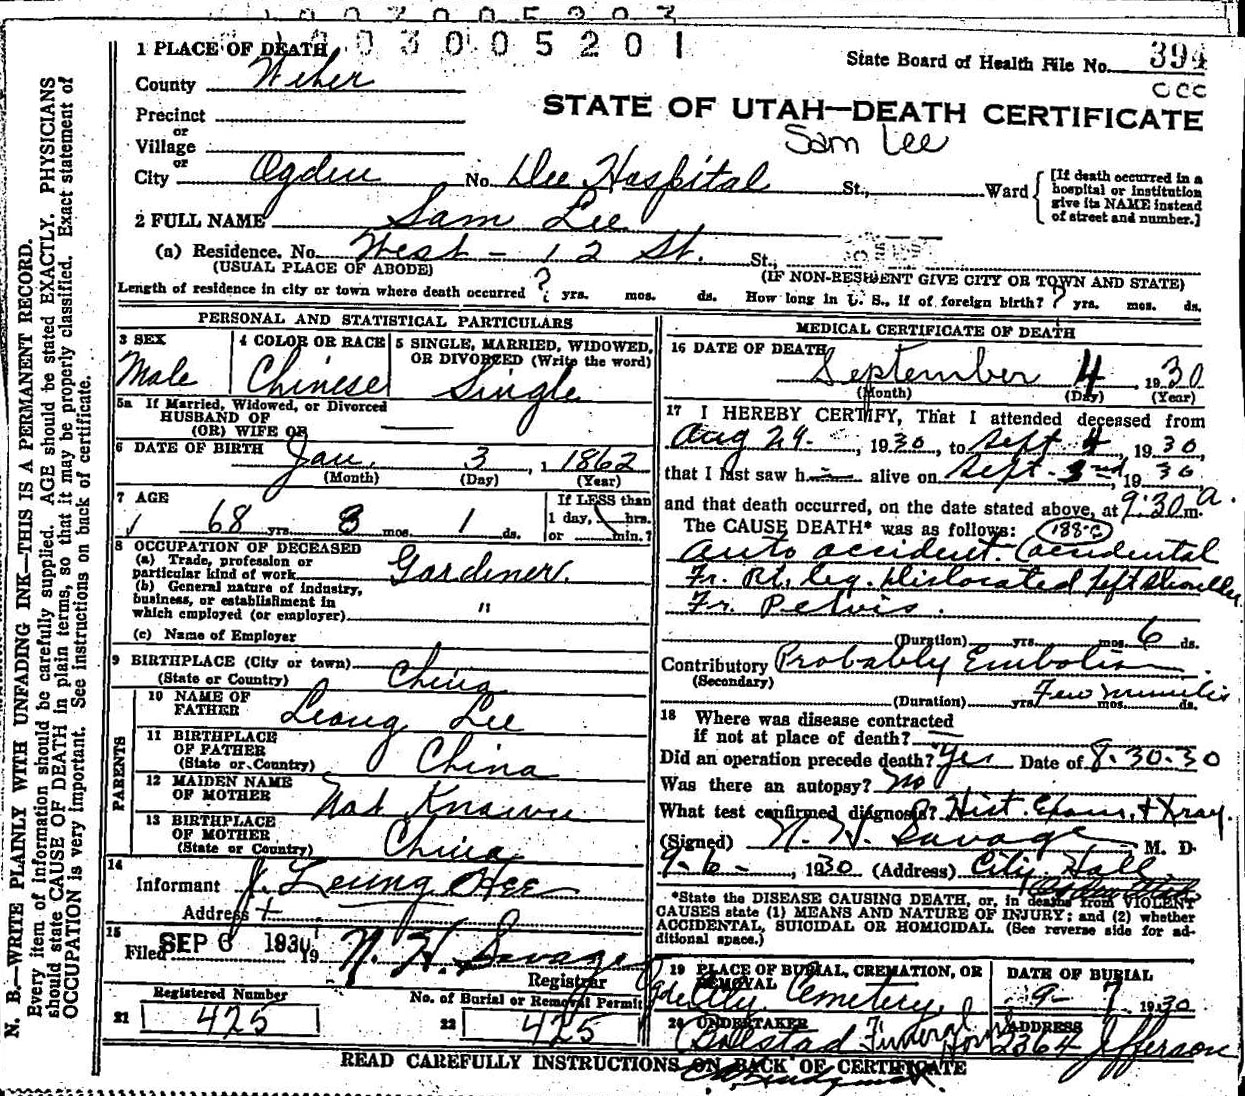 003005201
1 PLACE OF DEATH
State Board of Health File No. 394
County Weber
CCC
STATE OF UTAH—DEATH CERTIFICATE
Precinct
or
Village
Sam Lee
or
City Ogden No. Dee Hospital St., Ward
[If death occurred in a hospital or institution give its NAME instead of street and number.]
2 FULL NAME Sam Lee
(a) Residence. No. West - 12 St. St.,
(USUAL PLACE OF ABODE) (IF NON-RESIDENT GIVE CITY OR TOWN AND STATE)
Length of residence in city or town where death occurred ? yrs. mos. ds. How long in U. S., if of foreign birth? ? yrs. mos. ds.
PERSONAL AND STATISTICAL PARTICULARS
3 SEX
Male
4 COLOR OR RACE
Chinese
5 SINGLE, MARRIED, WIDOWED,
OR DIVORCED (Write the word)
Single
5a If Married, Widowed, or Divorced
HUSBAND OF
(OR) WIFE OF
6 DATE OF BIRTH Jan. 3, 1862
(Month) (Day) (Year)
7 AGE
68 yrs. 8 mos. 1 ds.
If LESS than
1 day, hrs.
or min.?
8 OCCUPATION OF DECEASED
(a) Trade, profession or
particular kind of work Gardiner.
(b) General nature of industry,
business, or establishment in
which employed (or employer) "
(c) Name of Employer
9 BIRTHPLACE (City or town)
(State or Country) China
PARENTS
10 NAME OF
FATHER Leong Lee
11 BIRTHPLACE
OF FATHER
(State or Country) China
12 MAIDEN NAME
OF MOTHER Not Known
13 BIRTHPLACE
OF MOTHER
(State or Country) China
14
Informant J. Leung Hee
Address
15
Filed SEP 6 1930, 19 N. H. Savage
Registrar
Registered Number
21 425
No. of Burial or Removal Permit
22 425
MEDICAL CERTIFICATE OF DEATH
16 DATE OF DEATH
September 4, 1930
(Month) (Day) (Year)
17 I HEREBY CERTIFY, That I attended deceased from
Aug 29, 1930, to Sept 4, 1930,
that I last saw h alive on Sept. 3nd, 1930
and that death occurred, on the date stated above, at 9:30 a. m.
The CAUSE DEATH* was as follows: 188-c
Auto accident. Accidental
Fr. Rt. leg. Dislocated left shoulder
Fr. Pelvis.
(Duration) yrs. mos. 6 ds.
Contributory Probably Embolism
(Secondary)
(Duration) yrs. mos. ds. Few minutes
18 Where was disease contracted
if not at place of death?
Did an operation precede death? Yes Date of 8-30-30
Was there an autopsy? No
What test confirmed diagnosis? Hist. Exam. & Xray.
(Signed) N. H. Savage M. D.
9-6-, 1930 (Address) City Hall
*State the DISEASE CAUSING DEATH, or, in deaths from VIOLENT
CAUSES state (1) MEANS AND NATURE OF INJURY; and (2) whether
ACCIDENTAL, SUICIDAL OR HOMICIDAL. (See reverse side for ad-
ditional space.)
19 PLACE OF BURIAL, CREMATION, OR
REMOVAL
Cemetery
DATE OF BURIAL
9-7, 1930
20 UNDERTAKER
Funeral Home
ADDRESS
2364 Jefferson
READ CAREFULLY INSTRUCTIONS ON BACK OF CERTIFICATE
N. B.—WRITE PLAINLY WITH UNFADING INK—THIS IS A PERMANENT RECORD.
Every item of information should be carefully supplied. AGE should be stated EXACTLY. PHYSICIANS
should state CAUSE OF DEATH in plain terms, so that it may be properly classified. Exact statement of
OCCUPATION is very important. See instructions on back of certificate.